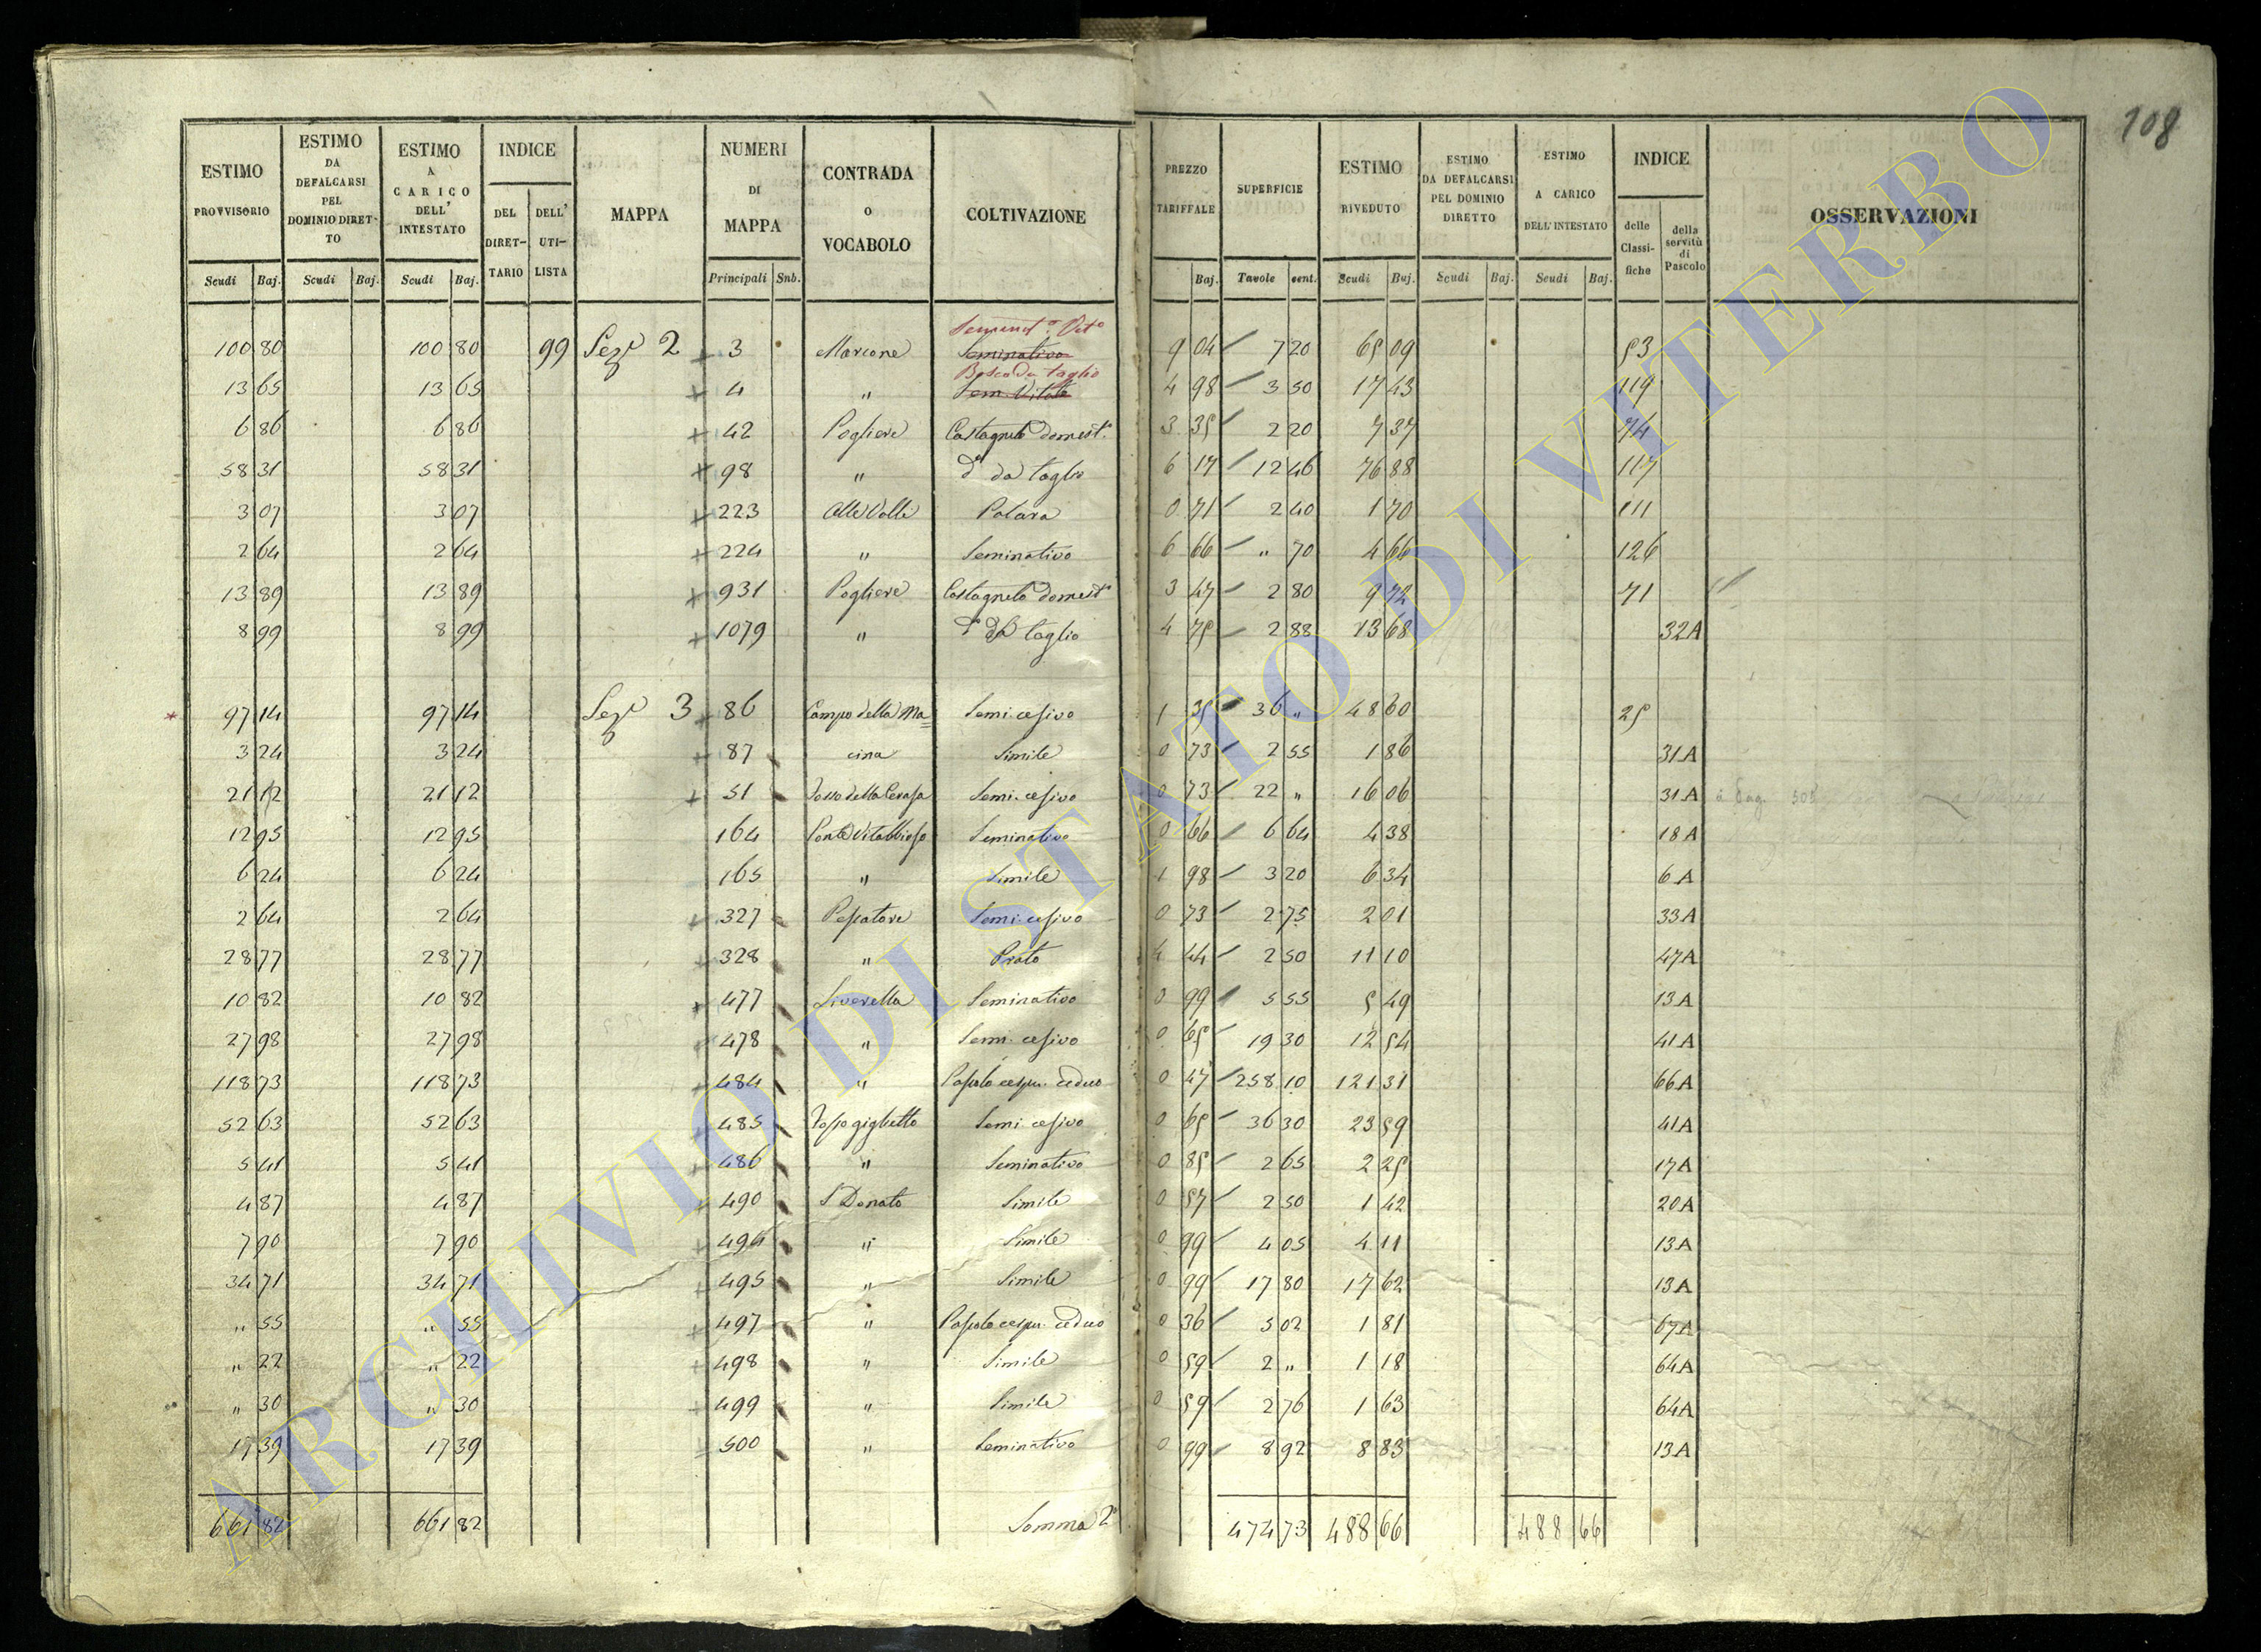 108
ESTIMO PROVVISORIO Scudi Baj.
ESTIMO DA DEFALCARSI PEL DOMINIO DIRETTO Scudi Baj.
ESTIMO A CARICO DELL' INTESTATO Scudi Baj.
INDICE DEL DIRETTARIO DELL' UTILISTA
MAPPA
NUMERI DI MAPPA Principali Snb.
CONTRADA o VOCABOLO
COLTIVAZIONE
PREZZO TARIFFALE Baj.
SUPERFICIE Tavole cent.
ESTIMO RIVEDUTO Scudi Baj.
ESTIMO DA DEFALCARSI PEL DOMINIO DIRETTO Scudi Baj.
ESTIMO A CARICO DELL'INTESTATO Scudi Baj.
INDICE delle Classifiche della servitù di Pascolo
OSSERVAZIONI
Seminto. Vito
100 80 100 80 99 Seze 2 3 Marcone Seminativo 9 04 7 20 65 09 53
Bosco da taglio
13 65 13 65 4 " Sem. Vitato 4 98 3 50 17 43 119
6 86 6 86 42 Pogliere Castagneto domest. 3 35 2 20 7 37 74
58 31 58 31 98 " do da taglio 6 17 12 46 76 88 117
3 07 3 07 223 Alle Valli 0 71 2 40 1 70 111
2 64 2 64 224 " Seminativo 6 66 " 70 4 66 126
13 89 13 89 931 Pogliere Castagneto domest. 3 47 2 80 9 72 71
8 99 8 99 1079 " do da taglio 4 75 2 88 13 68 32A
97 14 97 14 Seze 3 86 Campo della Ma= Semi. cesivo 1 35 36 " 48 60 25
3 24 3 24 87 cina Simile 0 73 2 55 1 86 31A
21 12 21 12 51 Fosso della Cerasa Semi. cesivo 0 73 22 " 16 06 31A
12 95 12 95 164 Ponte Vitabbieso Seminativo 0 66 6 64 4 38 18A
6 24 6 24 165 " Simile 1 98 3 20 6 34 6A
2 64 2 64 327 Pesatore Semi. cesivo 0 73 2 75 2 01 33A
28 77 28 77 328 " Prato 4 44 2 50 11 10 47A
10 82 10 82 477 Liverella Seminativo 0 99 5 55 5 49 13A
27 98 27 98 478 " Semi. cesivo 0 65 19 30 12 54 41A
118 73 118 73 484 " Pascolo cespu. ceduo 0 47 258 10 121 31 66A
52 63 52 63 485 Fosso giglietto Semi. cesivo 0 65 36 30 23 59 41A
5 41 5 41 486 " Seminativo 0 85 2 65 2 25 17A
4 87 4 87 490 S. Donato Simile 0 57 2 50 1 42 20A
7 90 7 90 494 " Simile 0 99 4 05 4 11 13A
34 71 34 71 495 " Simile 0 99 17 80 17 62 13A
" 55 " 55 497 " Pascolo cespu. ceduo 0 36 5 02 1 81 67A
" 22 " 22 498 " Simile 0 59 2 " 1 18 64A
" 30 " 30 499 " Simile 0 59 2 76 1 63 64A
17 39 17 39 500 " Seminativo 0 99 8 92 8 83 13A
661 82 661 82 Somma 2a 474 73 488 66 488 66
ARCHIVIO DI STATO DI VITERBO